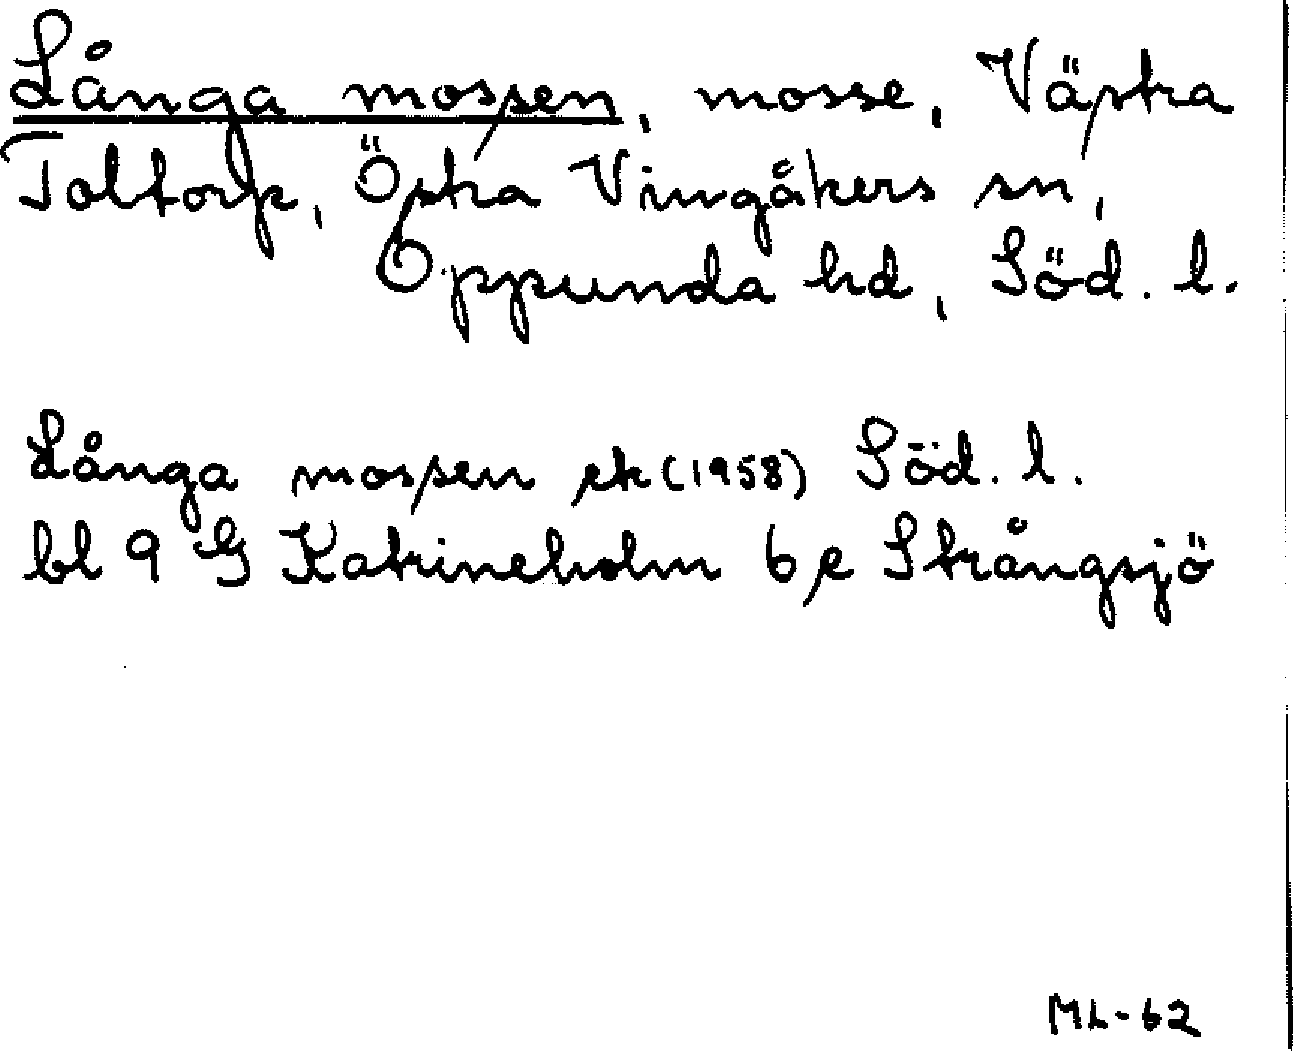 Långa mossen, mosse, Västra
Toltorp, Östra Vingåkers sn,
Oppunda hd, Söd. l.
Långa mossen ek (1958) Söd. l.
bl 9 G Katrineholm 6 e Strångsjö
ML-62